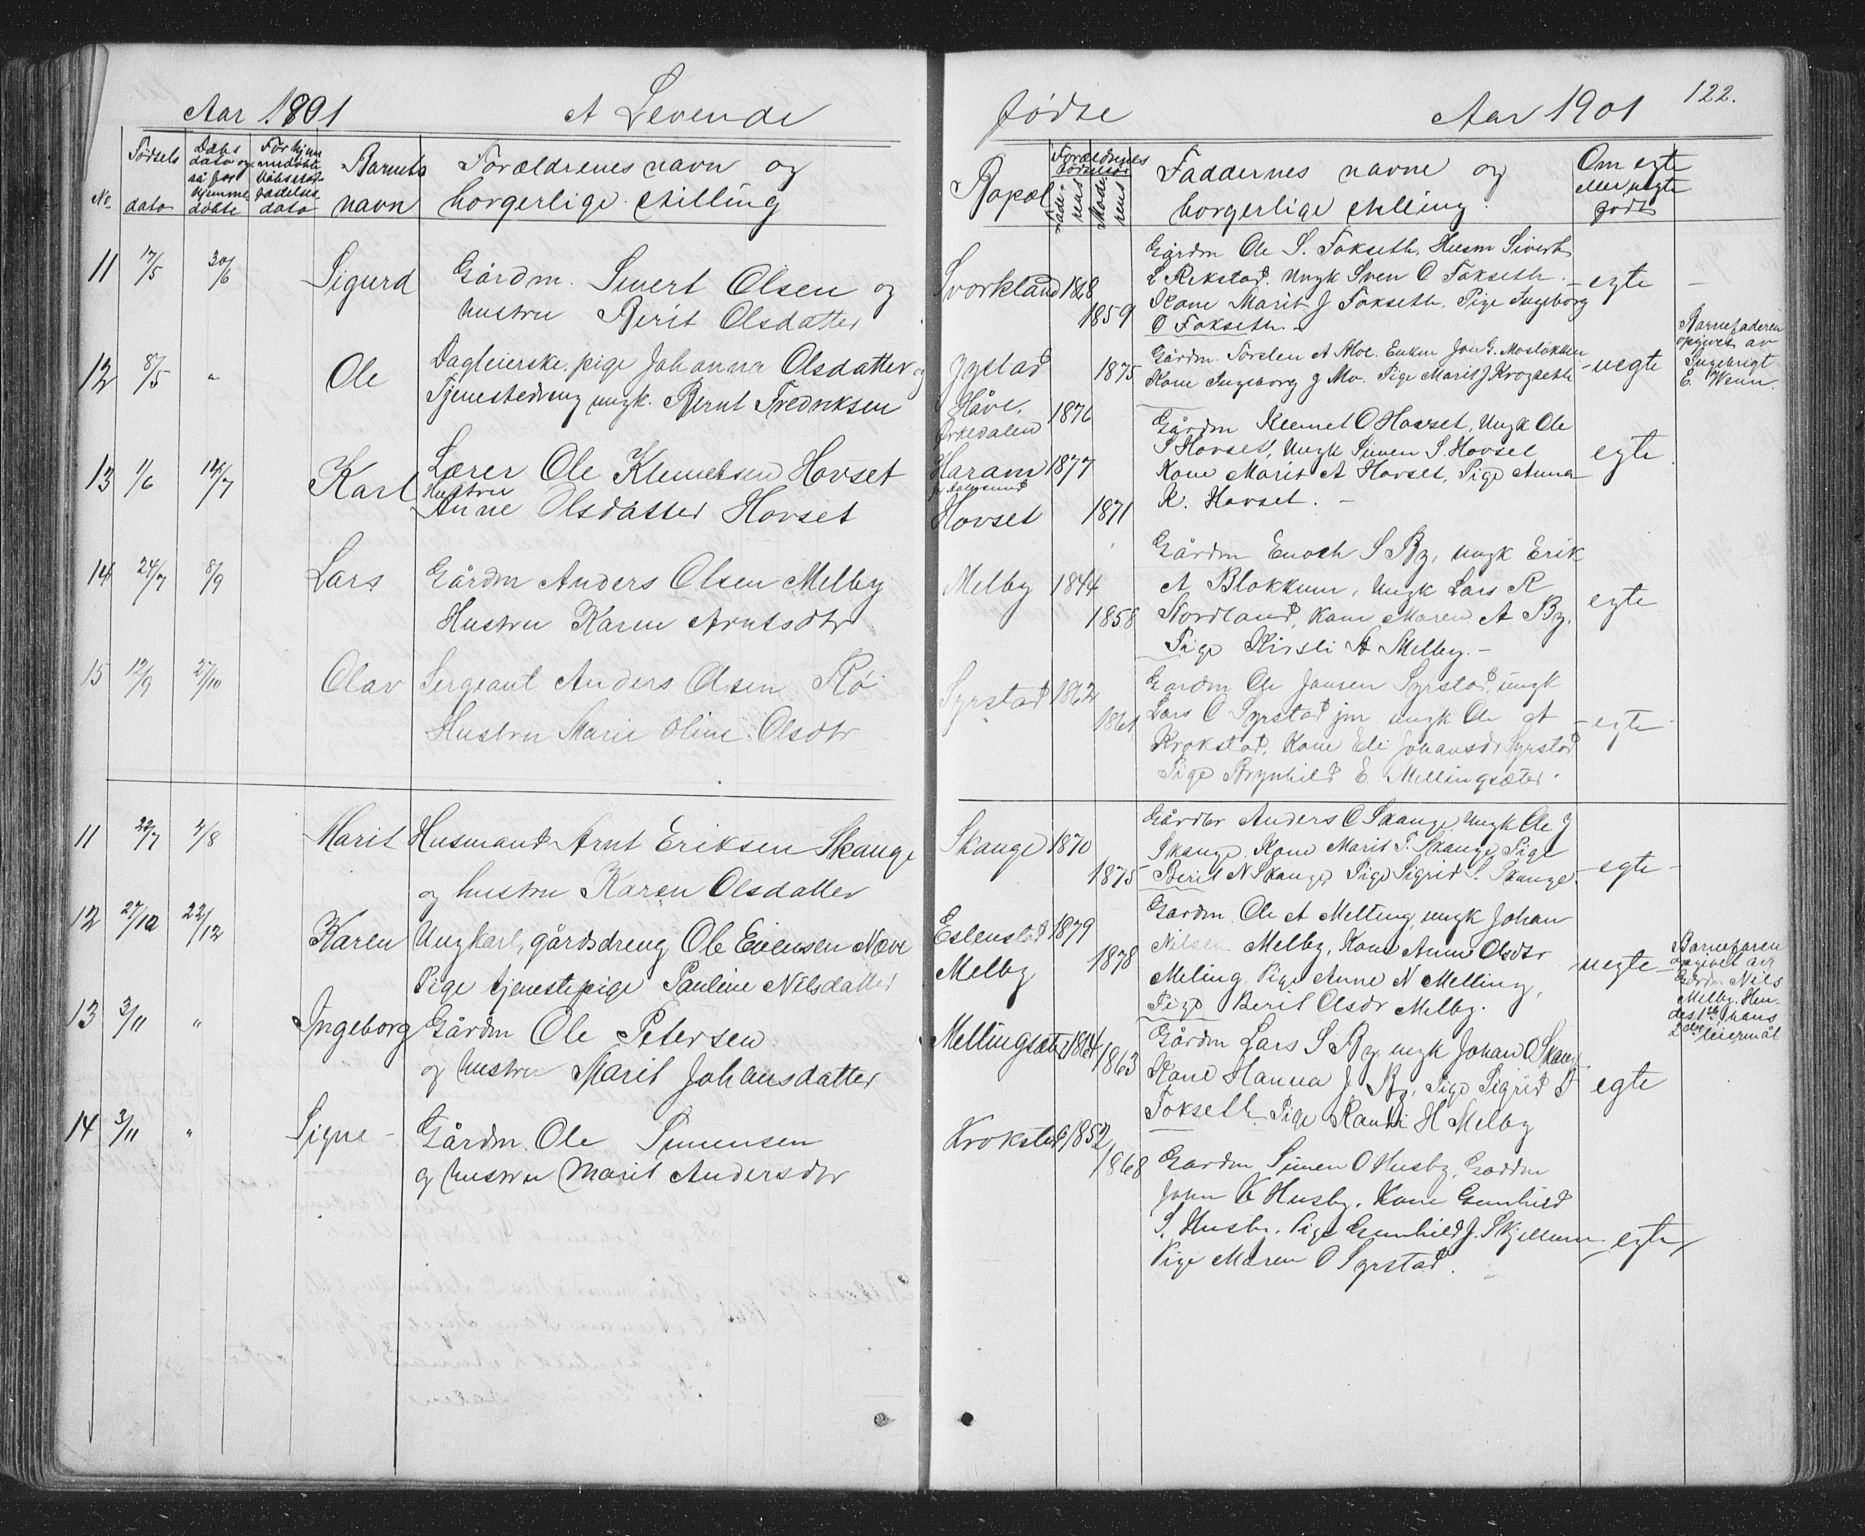 122.
Aar 1901 A Levende
fødte Aar 1901
No. Fødsels dato
Daabs dato og så for hjemme døbte
For hjemmedøbte dåbsstadfæstelses dato
Barnets navn
Forældrenes navn og borgerlige stilling
Bopæl
Forældrenes fødselsår
Faderens
Moderens
Faddernes navne og borgerlige stilling.
Om egte eller uegte født
11 17/5 30/6 Sigurd Gårdm. Sivert Olsen og
hustru Berit Olsdatter
Svorkland 1868
1859
Gårdm Ole S. Fokseth, Husm Sivert
L Rikstad. Ungk Sven O Fokseth.
Kone Marit J Fokseth, Pige Ingeborg
O Fokseth.
- egte -
12 8/5 " Ole Dagleierske, pige Johanna Olsdatter og
Tjenestedreng ungk. Bernt Fredriksen
Jystad 1875
Håve, Orkedalen 1876
Gårdm. Torsten A Moe. Enkem Jon G. Moslökken
Kone Ingeborg J Mo. Pige Marit J Krogseth
uegte
Barnefaderen
opgivet av
Ingebrigt
E. Wenn.
13 1/6 14/7 Karl Lærer Ole Klemetsen Hovset
Hustru
Anne Olsdatter Hovset
Haram 1877
Hovset 1871
Gårdm Klemet O Hovset, Ungk Ole
S Hovset, Ungk Simen S. Hovset
Kone Marit A Hovset, Pige Anna
K. Hovset. -
egte
14 24/7 8/9 Lars Gårdm Anders Olsen Melby
Hustru Karen Arntsdtr
Melby 1844
1858
Gårdm Enoch S By, ungk Erik
A Blokkum, Ungk Lars R
Nordland, Kone Maren A By.
Pige Kirsti A Melby. -
egte
15 12/9 27/10 Olav Sergeant Anders Olsen Rö
Hustru Marie Oline Olsdtr
Syrstad 1862
1861
Gårdm Ole Jansen Syrstad, ungk
Lars O Syrstad jm. ungk Ole A
Krokstad, Kone Eli Johansdr Syrstad
Pige Brynhild E. Mellingsæter.
- egte -
11 22/7 4/8 Marit Husmand Arnt Eriksen Skauge
og hustru Karen Olsdatter
Skauge 1870
1875
Gårdbr Anders O Skauge, Ungk Ole J
Skauge. Kone Marit T. Skauge, Pige
Berit N Skauge, Pige Sigrid S. Skauge
- egte -
12 27/10 22/12 Karen Ungkarl, gårdsdreng Ole Evensen Næve
Pige tjenestepige Pauline Nilsdatter
Eslenstad 1879
Melby 1878
Gårdm. Ole A Melting, ungk Johan
Nilsen Melby, Kone Anne Olsdtr
Meling, Pige Anne N Melling,
Pige Berit Olsdr Melby.
uegte
Barnefaren
opgivet av
Gårdm Nils
Melby. Hen-
des 1ste hans
2det leiermål
13 3/11 " Ingeborg Gårdm Ole Petersen
og hustru Marit Johansdatter
Mellingsæter 1864
1863
Gårdm Lars S By, ungk Johan O Skauge
Kone Hanna J By, Pige Sigrid D
Fokseth. Pige Randi H Melby
egte
14 3/11 " Signe - Gårdm. Ole Simensen
og hustru Marit Andersdtr
Krokstad 1852
1868
Gardm Simen O Husby, Gardm
John K Husby, Kone Gunhild
S. Husby. Pige Gunhild J. Skjellum
Pige Maren O Syrstad.
egte